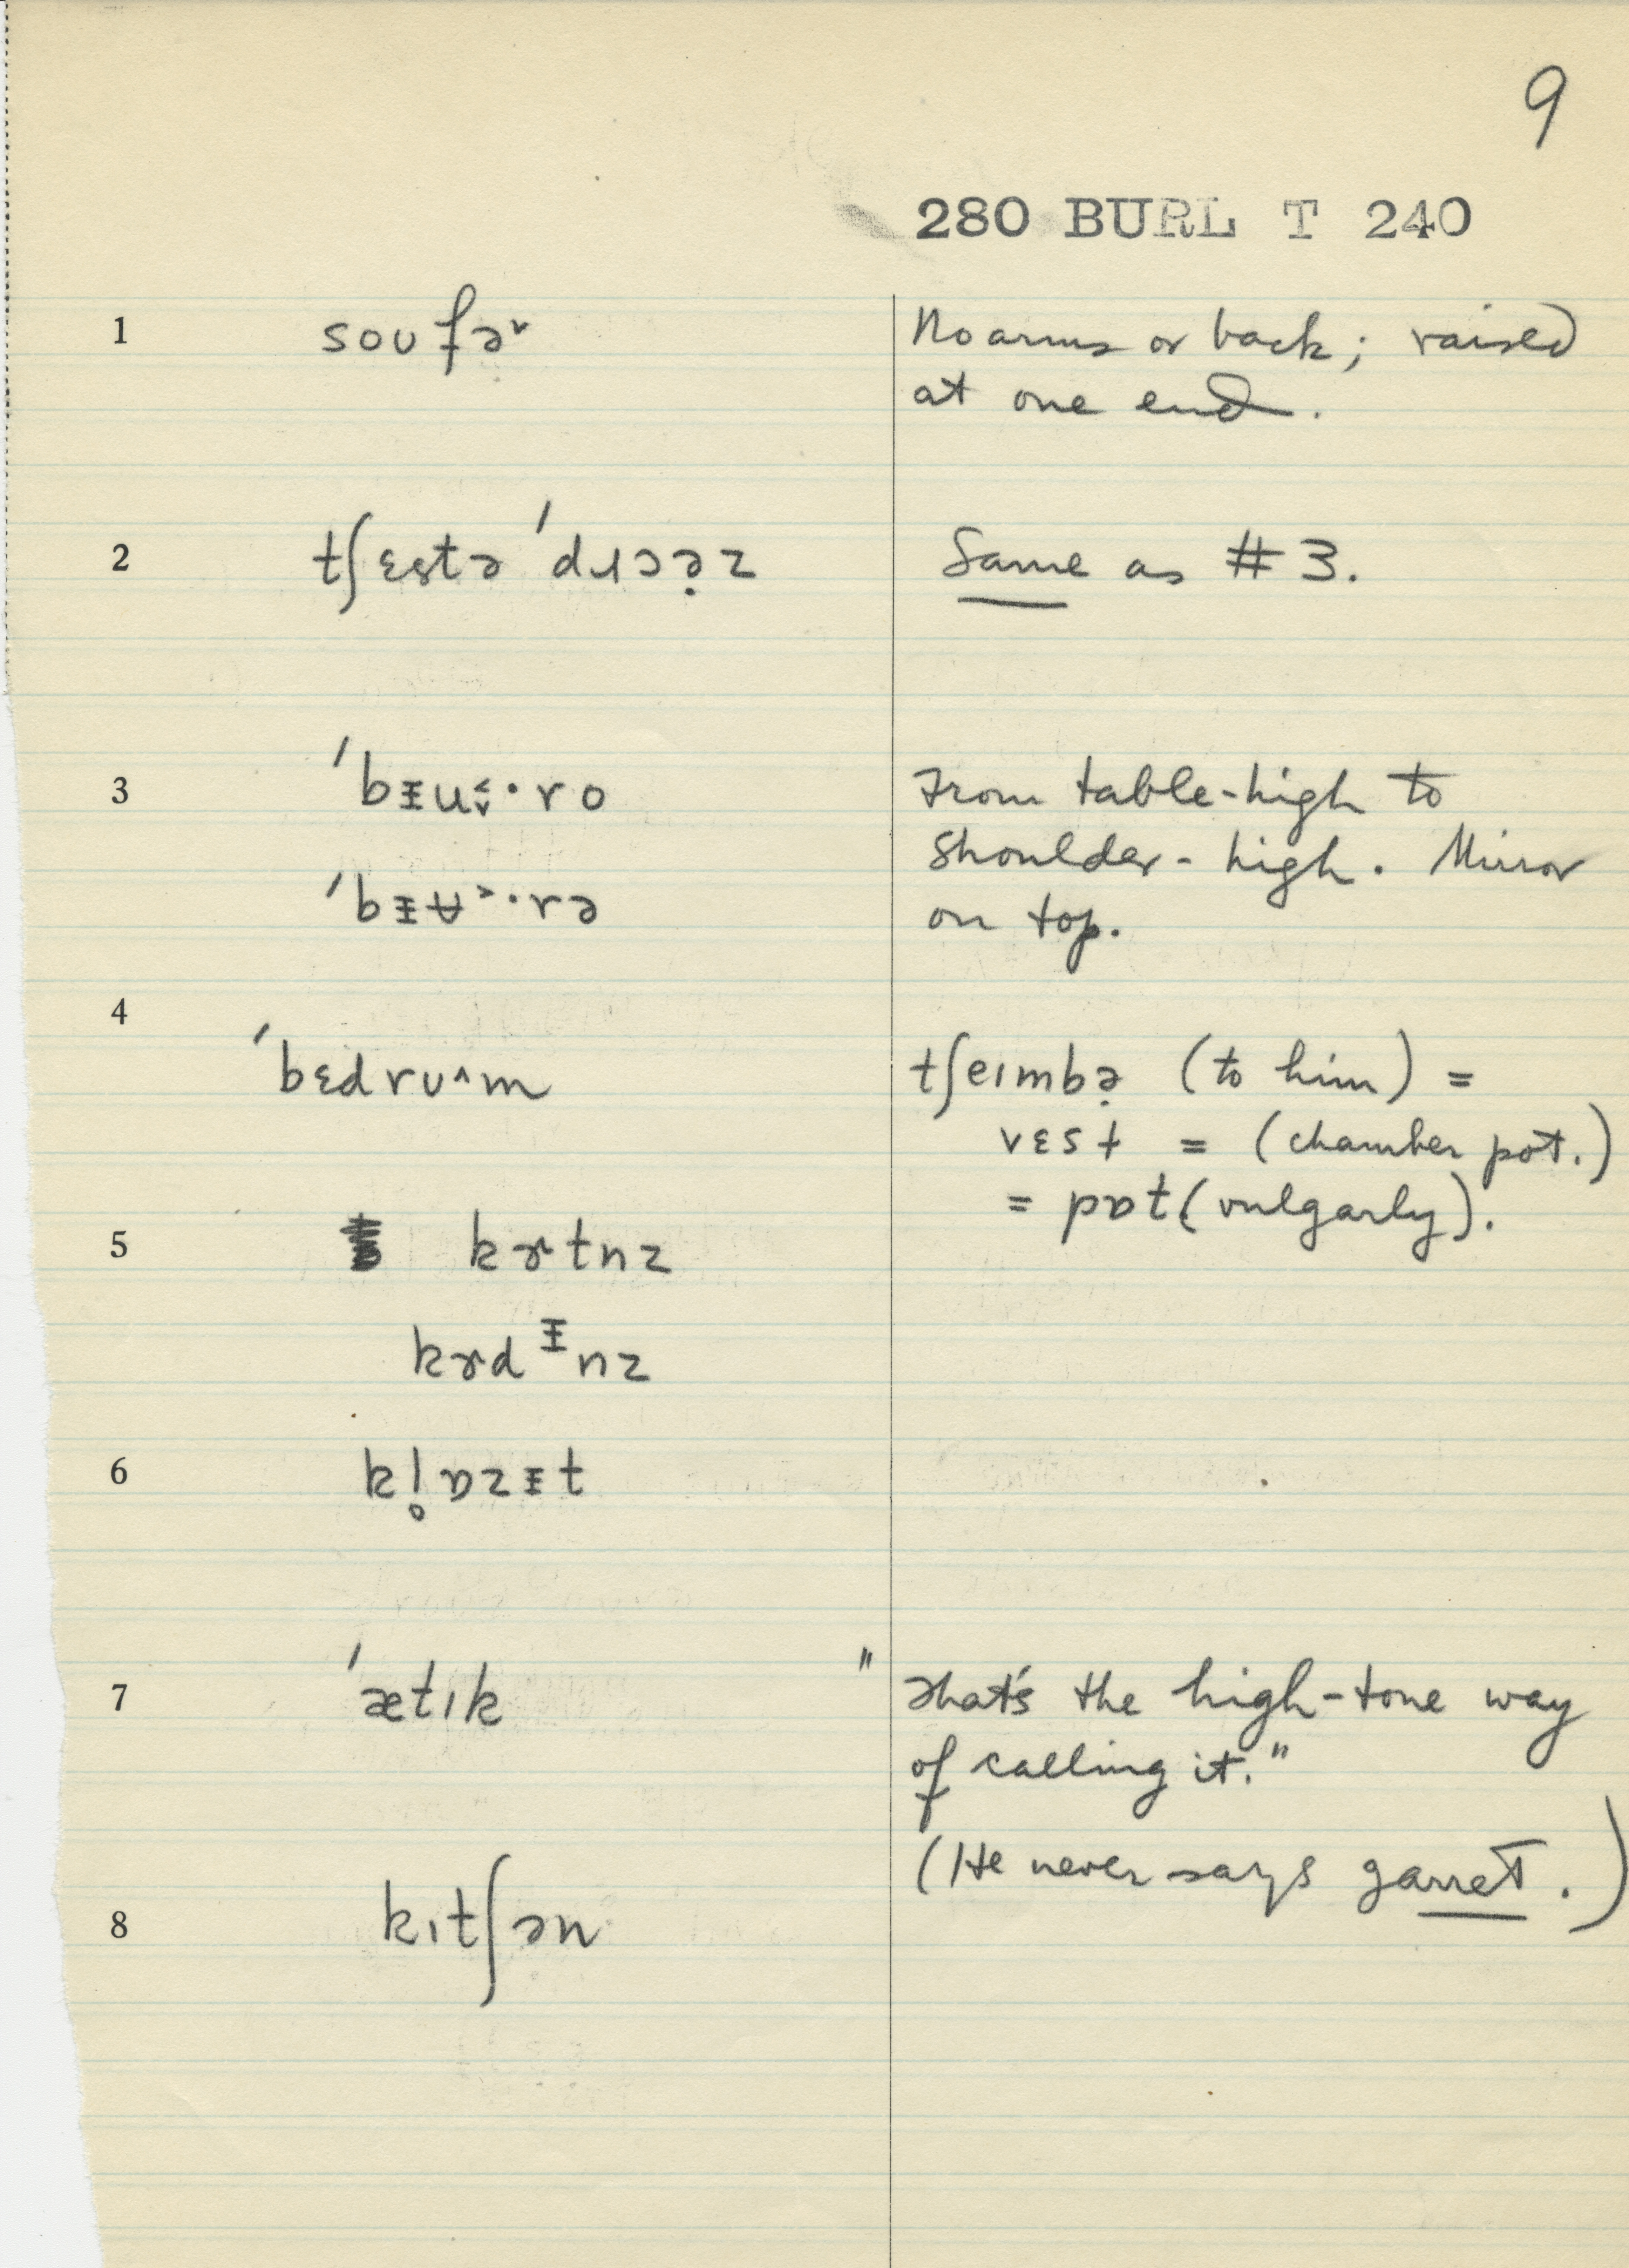 9
280 BURL T 240
1 soʊfə˅ No arms or back; raised
at one end.
2 tʃɛstə ˈdɹɔə̣z Same as #3.
3 ˈbᵻu˂̬·ro From table-high to
shoulder-high. Mirror
ˈbᵻʉ˃·rə on top.
4 ˈbɛdrʊ˄m tʃeɪmbə̣ (to him) =
vɛst = (chamber pot.)
= pɒt (vulgarly).
5 kɝtnz
kɝdᵻnz
6 kl̥ɒzᵻt
7 ˈætɪk "That's the high-tone way
of calling it."
(He never says garret.)
8 kɪtʃən